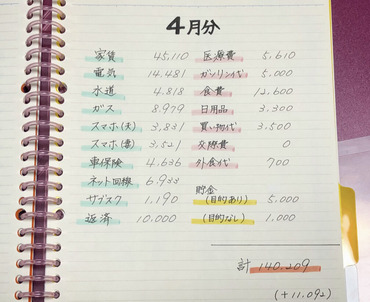 4月分
家賃 45,110 医療費 5,610
電気 14,481 ガソリン代 5,000
水道 4,818 食費 12,600
ガス 8,979 日用品 3,300
スマホ(夫) 3,831 買い物代 3,500
スマホ(妻) 3,521 交際費 0
車保険 4,636 外食代 700
ネット回線 6,933
サブスク 1,190 貯金
(目的あり) 5,000
返済 10,000 (目的なし) 1,000
計 140,209
(+11,092)